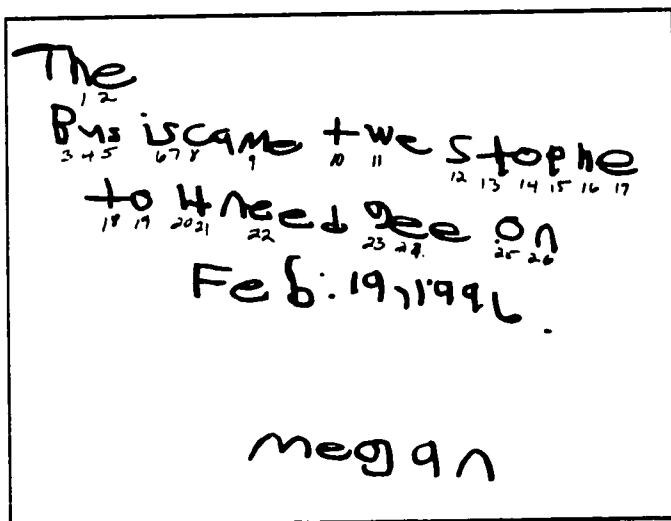 The
1 2
Bus iscame +we stophe
3 4 5 6 7 8 9 10 11 12 13 14 15 16 17
to 4need gee on
18 19 20 21 22 23 24. 25 26
Feb. 19, 1996.
megan